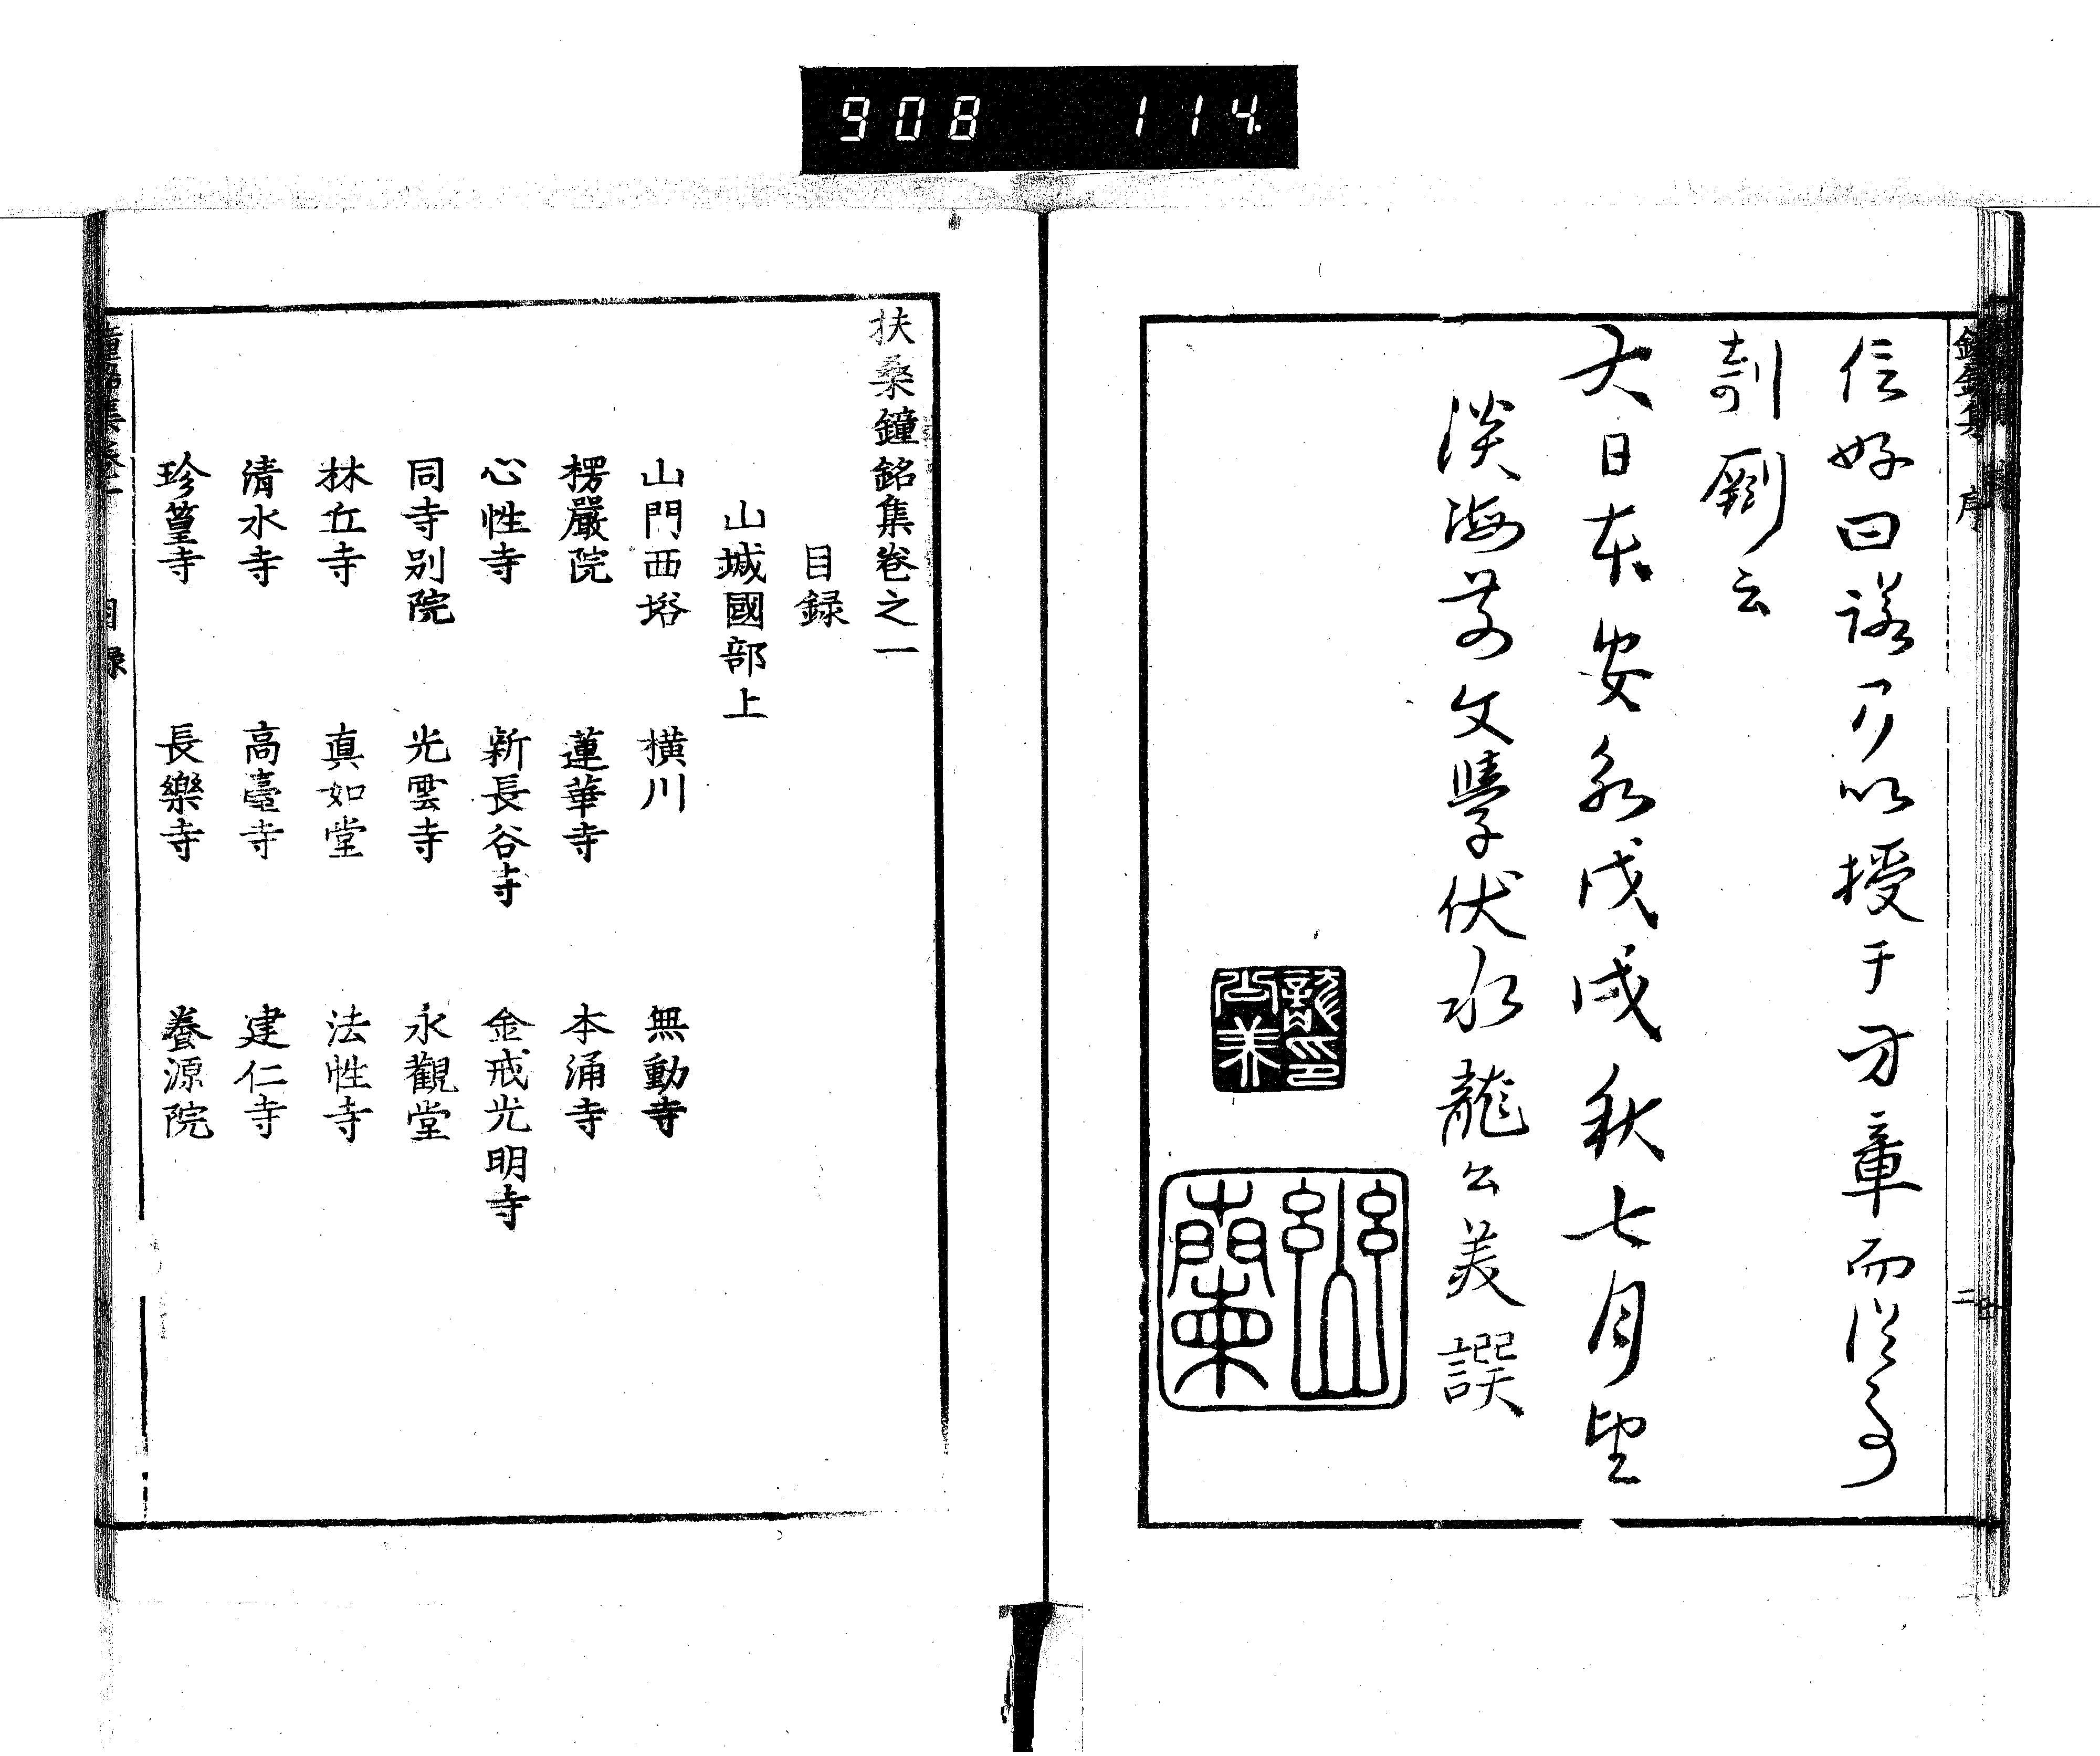 908 114
信好曰諾乃以授于方章而從事
剞劂云
大日本安永戊戌秋七月望
淡海前文學伏水龍公美譔
龍印公美
幽蘭
鐘銘集 序 二
扶桑鐘銘集卷之一
目録
山城國部上
山門西塔 橫川 無動寺
楞嚴院 蓮華寺 本涌寺
心性寺 新長谷寺 金戒光明寺
同寺別院 光雲寺 永觀堂
林丘寺 真如堂 法性寺
清水寺 高臺寺 建仁寺
珍篁寺 長樂寺 養源院
鐘銘集卷一 目錄